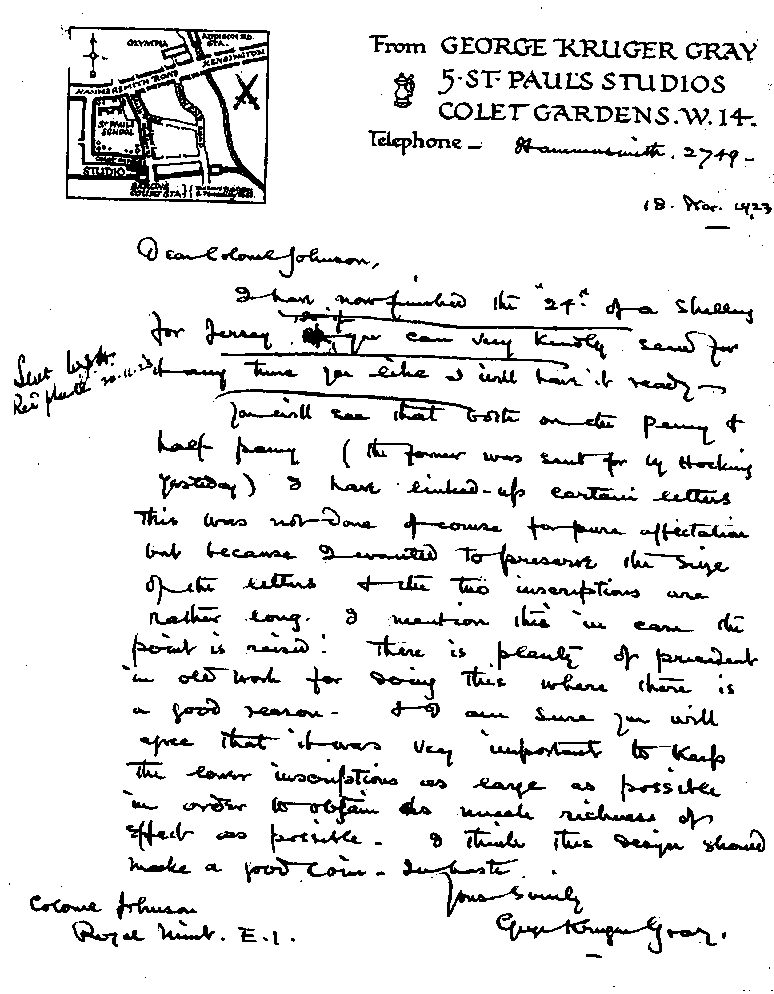 OLYMPIA
ADDISON RD
STA.
HAMMERSMITH ROAD
KENSINGTON
ST PAUL'S
SCHOOL
STUDIO
BARONS
COURT STA.
From GEORGE KRUGER GRAY
5·ST·PAUL'S STUDIOS
COLET GARDENS.W.14-
Telephone - Hammersmith. 2749-
18. Nov. 1923
Dear Colonel Johnson,
I have now finished the "24th" of a Shilling
for Jersey, so if you can very kindly send for
it any time you like I will have it ready -
Sent
Rec plaster 20.11.23
You will see that both on the penny &
half penny (the former was sent for by Hocking
yesterday) I have linked-up certain letters
this was not done of course for pure affectation
but because I wanted to preserve the size
of the letters & the two inscriptions are
rather long. I mention this in case the
point is raised. There is plenty of precedent
in old work for doing this where there is
a good reason - & I am sure you will
agree that it was very important to keep
the lower inscriptions as large as possible
in order to obtain as much richness of
effect as possible - I think this design should
make a good coin - In haste.
Yours sincerely
George Kruger Gray.
Colonel Johnson
Royal Mint. E.1.